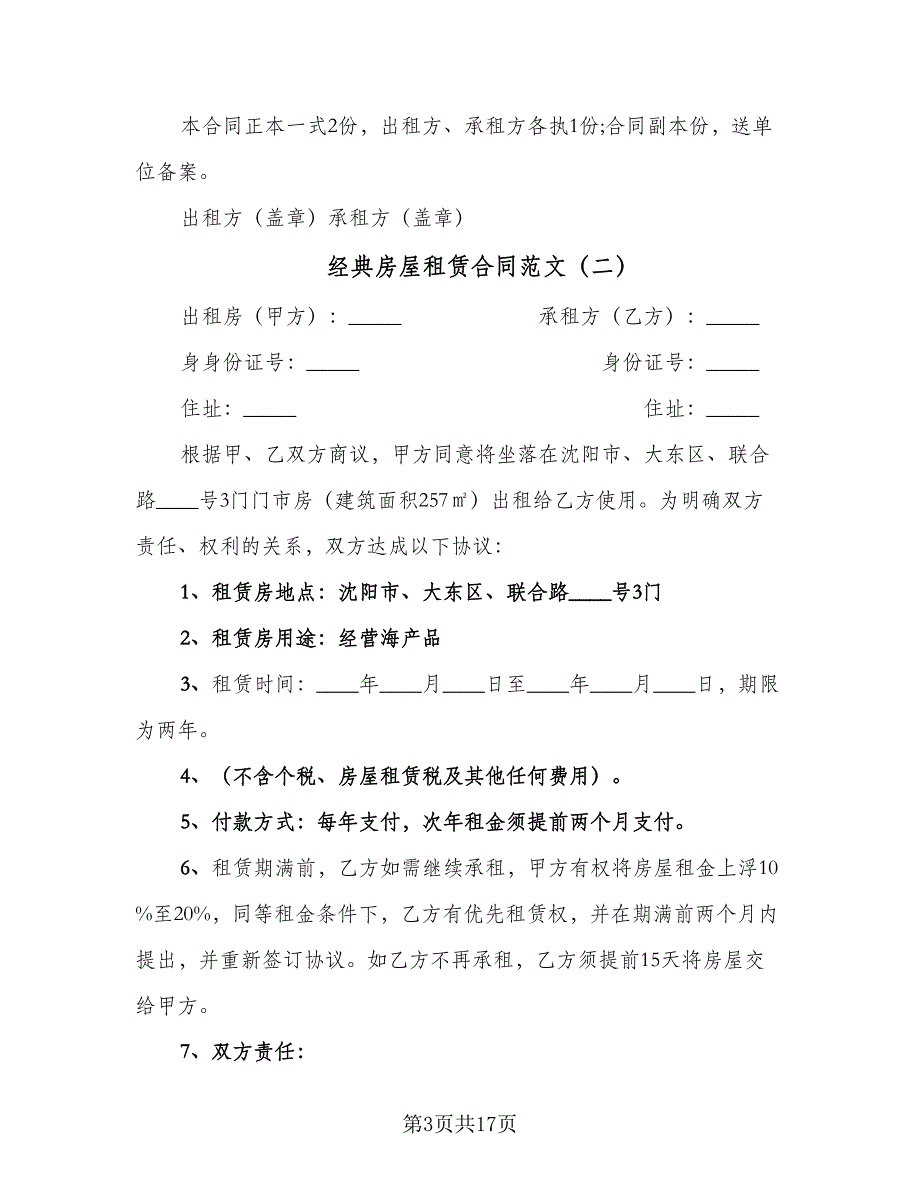 本合同正本一式2份，出租方、承租方各执1份;合同副本份，送单
位备案。
出租方（盖章）承租方（盖章）
经典房屋租赁合同范文（二）
出租房（甲方）：_____ 承租方（乙方）：_____
身身份证号：_____ 身份证号：_____
住址：_____ 住址：_____
根据甲、乙双方商议，甲方同意将坐落在沈阳市、大东区、联合
路____号3门门市房（建筑面积257㎡）出租给乙方使用。为明确双方
责任、权利的关系，双方达成以下协议：
1、租赁房地点：沈阳市、大东区、联合路____号3门
2、租赁房用途：经营海产品
3、租赁时间：____年____月____日至____年____月____日，期限
为两年。
4、（不含个税、房屋租赁税及其他任何费用）。
5、付款方式：每年支付，次年租金须提前两个月支付。
6、租赁期满前，乙方如需继续承租，甲方有权将房屋租金上浮10
%至20%，同等租金条件下，乙方有优先租赁权，并在期满前两个月内
提出，并重新签订协议。如乙方不再承租，乙方须提前15天将房屋交
给甲方。
7、双方责任：
第3页共17页